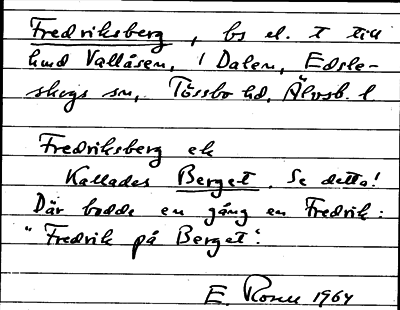 Fredriksberg, bs el. t till
hmd Vallåsen, i Dalen, Edsle-
skogs sn, Tössbo hd, Älvsb. l
Fredriksberg ek
Kallades Berget. Se detta!
Där bodde en gång en Fredrik:
"Fredrik på Berget".
E. Rosen 1964